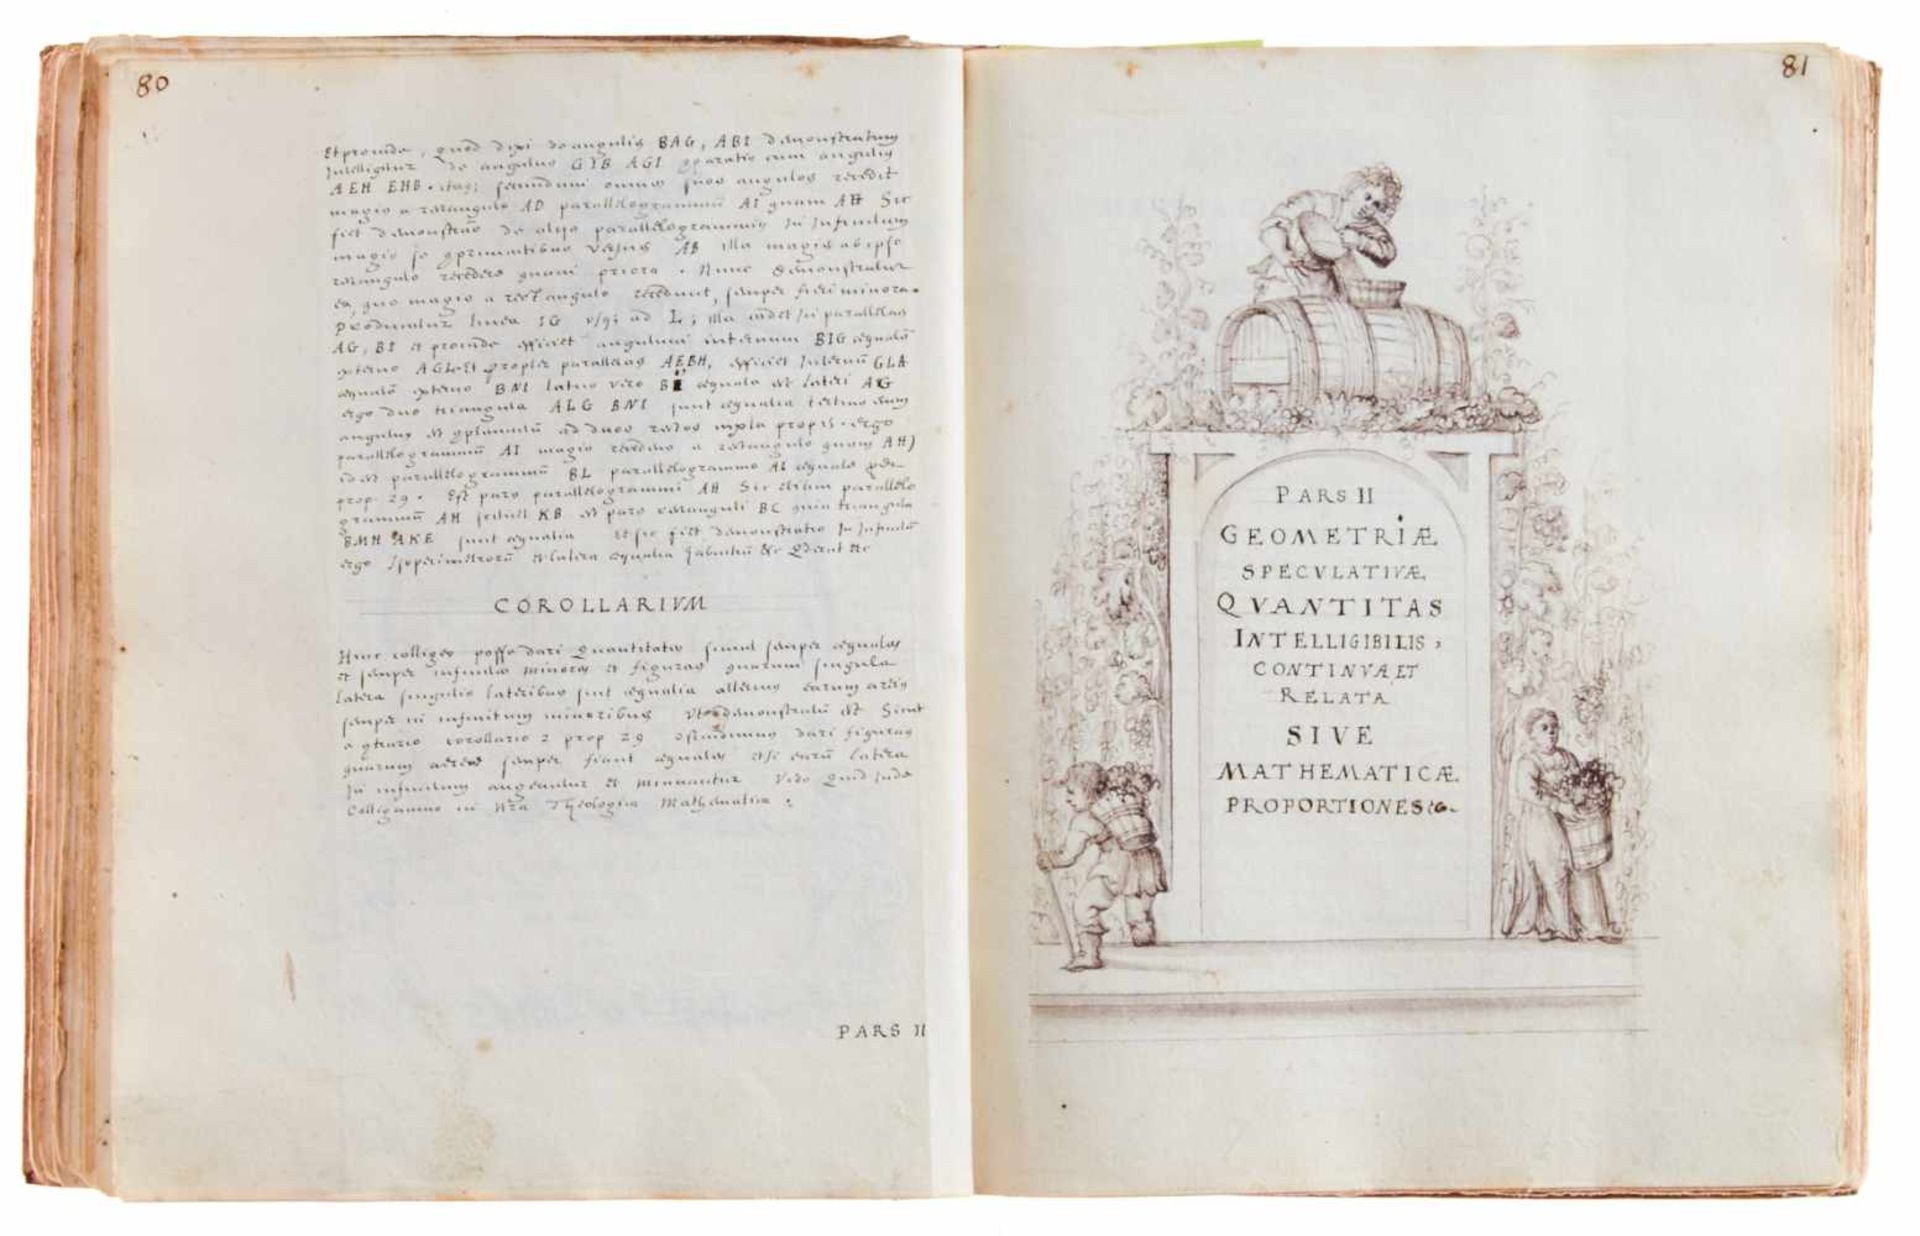 80
Et proinde, quod dixi de angulis BAG, ABI demonstratum
Intelligatur de angulis GIB AGI cum angulis
AEH EHB. itaq; secundum omnes suos angulos recedit
magis a rectangulo AD parallelogrammū AI quam AH Sic
fiet demonstratio de alijs parallelogrammis In Infinitum
magis se versus AB illa magis ab ipso
rectangulo recedere quam priora. Nunc demonstratur
ea, quo magis a rectangulo recedunt, semper fieri minora.
Producatur linea IG vsq; ad L; illa cadet In parallelas
AG, BI et proinde efficiet angulum internum BIG equalē
externo AGL. Et propter parallelas AEBH, efficiet Internū GLA
equalē externo BNI latus vero BI equale est lateri AG
ergo duo triangula ALG BNI sunt equalia tertius enim
angulus est ad duos rectos propos. ergo
parallelogrammū AI magis recedens a rectangulo quam AH)
id est parallelogrammū BL parallelogrammo AI equale per
prop. 29. Est pars parallelogrammi AH Sic etiam parallelo
grammū AH scilicet KB est pars rectanguli BC quia triangula
BMH AKE sunt equalia et sic fiet demonstratio In Infinitū
ergo Isoperimetrorū et latera equalia habentiū &c Q derat &c
COROLLARIVM
Hinc colliges posse dari Quantitates simul semper equales
et semper infinite minores et figuras quarum singula
latera singulis lateribus sint equalia alterius earum areis
semper in infinitum minoribus vt demonstratū est Sicut
a corollario 2 prop 29 ostendimus dari figuras
quarum aereae semper fiant equales etsi earū latera
In infinitum augeantur et minuantur Vide Quid Inde
Colligamus in Nra Theologia Mathematica.
PARS II
81
PARS II
GEOMETRIÆ
SPECVLATIVÆ,
QVANTITAS
INTELLIGIBILIS,
CONTINVA, ET
RELATA
SIVE
MATHEMATICÆ
PROPORTIONES